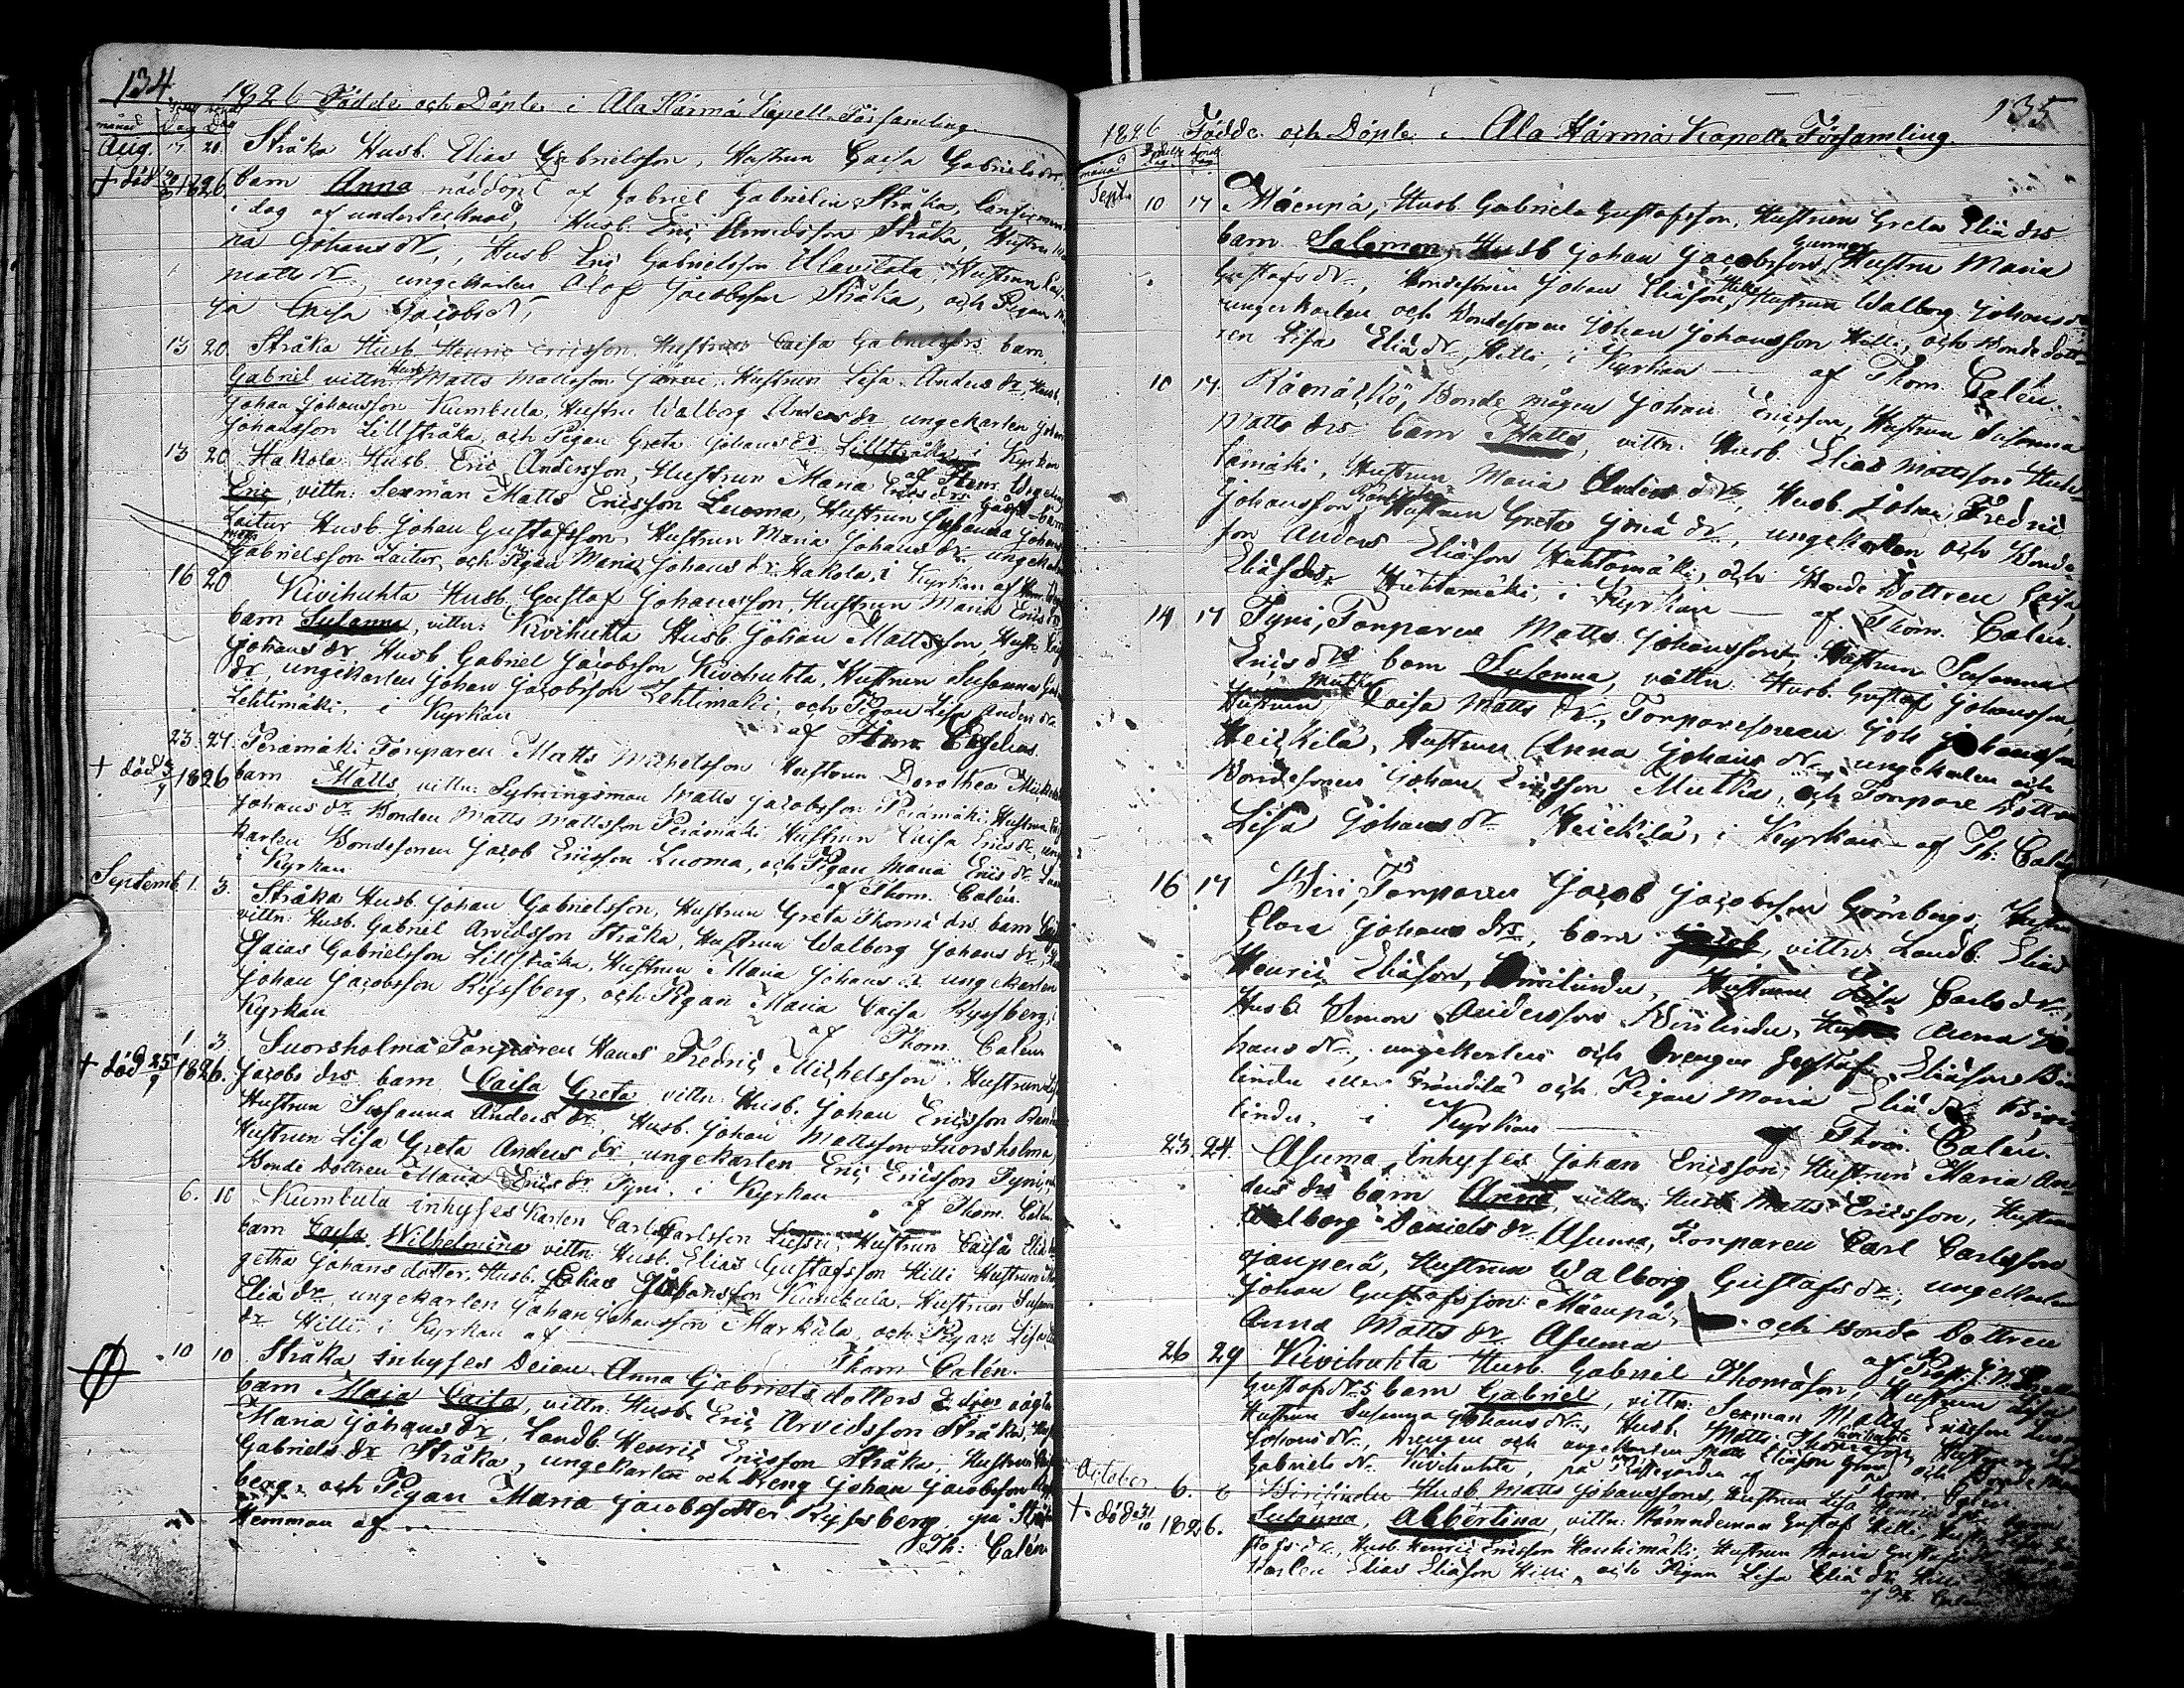 134.
1826 Födde och Döpte i Ala Härmä Kapell Församling.
månad dag dag
Aug. 17 20. Stråka Husb. Elias Gabrielsson, Hustrun Caisa Gabriels dr
+ död 1826 barn Anna nöddöpt af Gabriel Gabrielss. Stråka, Confirmerad
i dag af undertecknad, Husb. Eric Arvidsson Stråka, Hustru
na Johans dr., Husb Eric Gabrielsson Ulavitala, Hustrun
Matts dr, ungekarlen Alof Jacobsson Stråka, och Pigan
Caisa Jacobs dr,
13 20 Stråka Husb. Henric Ericsson, Hustrun Caisa Gabrielsdrs barn,
Gabriel vittn. Husb. Matts Mattsson Järvi, Hustrun Lisa Anders dr, Husb.
Johan Johansson Kumbula, Hustru Walborg Anders dr, ungekarlen Johan
Johansson Lillstråka, och Pigan Greta Johans dr Lillstråka, i Kyrkan
13 20 Hakola Husb. Eric Andersson, Hustrun Maria Erics drs barn
Eric, vittn: Sexman Matts Ericsson Luoma, Hustrun Susanna Johans
Laitur Husb Johan Gustafsson, Hustrun Maria Johans dr. ungekarlen
Matts Gabrielsson Laitur, och Pigan Maria Johans dr Hakola, i Kyrkan af
16 20 Kivihuhta Husb. Gustaf Johansson, Hustrun Maria Erics drs
barn Susanna, vittn: Kivihuhta Husb. Johan Mattsson, Hustr.
Johans dr Husb Gabriel Jacobsson Kivihuhta, Hustrun Susanna
dr, ungekarlen Johan Jacobsson Lehtimäki, och Pigan Lisa Anders dr
Lehtimäki, i Kyrkan af
23. 27. Perämäki Torparen Matts Michelsson Hustrun Dorothea Mickels
+ död 3/9 1826 barn Matts vittn. Sytningsman Matts Jacobsson Perämäki, Hustrun
Johans dr. Bonden Matts Mattsson Perämäki, Hustrun Caisa Erics dr, unge
karlen Bondesonen Jacob Ericsson Luoma, och Pigan Maria Erics dr
i Kyrkan af Thom. Calén.
Septemb. 1. 3. Stråka Husb. Johan Gabrielsson, Hustrun Greta Thomä drs barn
vittn: Husb. Gabriel Arvidsson Stråka, Hustrun Walborg Johans dr,
Esaias Gabrielsson Lillstråka, Hustrun Maria Johans dr ungekarlen
Johan Jacobsson Ryssberg, och Pigan Maria Caisa Ryssberg,
Kyrkan af Thom. Calén
1 3 Suorsholma Torparen Hans Fredric Michelsson, Hustrun
+ död 25/9 1826. Jacobs drs barn Caisa Greta vittn Husb. Johan Ericsson
Hustrun Susanna Anders dr, Husb. Johan Mattsson Suorsholma
Hustrun Lisa Greta Anders dr, ungekarlen Eric Ericsson Tyni,
Bonde Dottren Maria Erics dr Tyni, i Kyrkan af Thom. Calén.
6. 10 Kumbula inhyses Karlen Carl Carlsson Hustrun Caisa Eliä
barn Caisa Wilhelmina vittn. Husb. Elias Gustafsson Hilli Hustrun
getha Johans dotter, Husb. Elias Johansson Kumbula, Hustrun Susanna
Eliä dr, ungekarlen Johan Johansson Markula och Pigan Lisa
dr Hilli i Kyrkan af Thom Calén.
10 10 Stråka inhyses Deian Anna Gabriels dotters 2dra oägta
barn Maja Caisa, vittn. Husb. Eric Arvidsson Stråka,
Maria Johans dr, Landb. Henric Ericsson Stråka, Hustrun
Gabriels dr Stråka, ungekarlen och Dreng Johan Jacobsson
berg, och Pigan Maria Jacobsdotter Ryssberg, på Stråka
Hemman af Th: Calén
135
1826 Födde och Döpte i Ala Härmä Kapell Församling.
månad
Sept. 10 17 Mäenpä, Husb. Gabriel Gustafsson, Hustrun Greta Eliä drs
barn Salomon, Husb Johan Jacobsson Gunnar, Hustru Maria
Gustafs dr., Bondesonen Johan Eliäson Hilli, Hustrun Walborg Johans dr
ungekarlen och Bondesonen Johan Johansson Hilli, och Bonde dott
ren Lisa Eliä dr Hilli, i Kyrkan af Thom. Calén.
10 17. Bonde mågen Johan Ericsson, Hustrun Susanna
Matts drs barn Matts, vittn. Husb. Elias Mattsson Huh
tamäki, Hustrun Maria Anders dr, Husb. Johan Fredric
Johansson Hustrun Greta Jonä dr., ungekarlen och Bonde
son Anders Eliäson Huhtamäki, och Bonde Dottren Caisa
Eliäs dr Huhtamäki, i Kyrkan af Thom. Calén.
14 17 Tyni, Torparen Matts Johansson, Hustrun Susanna
Erics drs barn Susanna, vittn. Husb. Gustaf Johansson
Mutka, Hustrun Caisa Matts dr., Torparesonen Joh Johansson
Heickilä, Hustrun Anna Johans dr ungekarlen och
Bondesonen Johan Ericsson Mutka, och Torpare Dottren
Lisa Johans dr Heickilä, i Kyrkan af Th: Calén
16 17 Wiri, Torparen Jacob Jacobsson Grönberg, Hustru
Clara Johans drs, barn Jacob, vittn. Landb. Elias
Henric Eliäson, Wirilindu, Hustrun Lisa Carls dr,
Husb. Simon Andersson Wirilindu, Hustru Anna Jo
hans dr, ungekarlen och Drengen Gustaf Eliäson
lindu eller Frändilä och Pigan Maria Eliä dr Wiri
lindu, i Kyrkan af Thom. Calén.
23. 24. Asuma, Inhyses Johan Ericsson, Hustrun Maria An
ders drs barn Anna, vittn. Husb Matts Ericsson, Hustrun
Walborg Daniels dr Asuma, Torparen Carl Carlsson
ojanperä, Hustrun Walborg Gustafs dr, ungekarlen
Johan Gustafsson Mäenpä, och Bonde Dottren
Anna Matts dr Asuma af
26 29 Kivihuhta Husb. Gabriel Thomäson, Hustrun Lisa
Gustafs dr s barn Gabriel, vittn. Sexman Matts Ericsson Luoma
Hustrun Susanna Johans dr, Husb. Matts Thomäson Kivihuhta Hustrun
Johans dr, Drengen och ungekarlen Matts Eliäson och Bonde
Gabriels dr Kivihuhta, på af Thom. Calén
October 6. 8 Wirilindu Husb Matts Johanssons, Hustrun Lisa Henrics drs barn
+ död 31/10 1826. Susanna, Albertina, vittn. Nämndeman Gustaf Hilli, Hustr Lisa
dr, Husb. Henric Ericsson Haukimäki, Hustrun Maria Gustafs
karlen Elias Eliäson Hilli, och Pigan Lisa Eliä dr Hilli
af Th Calén